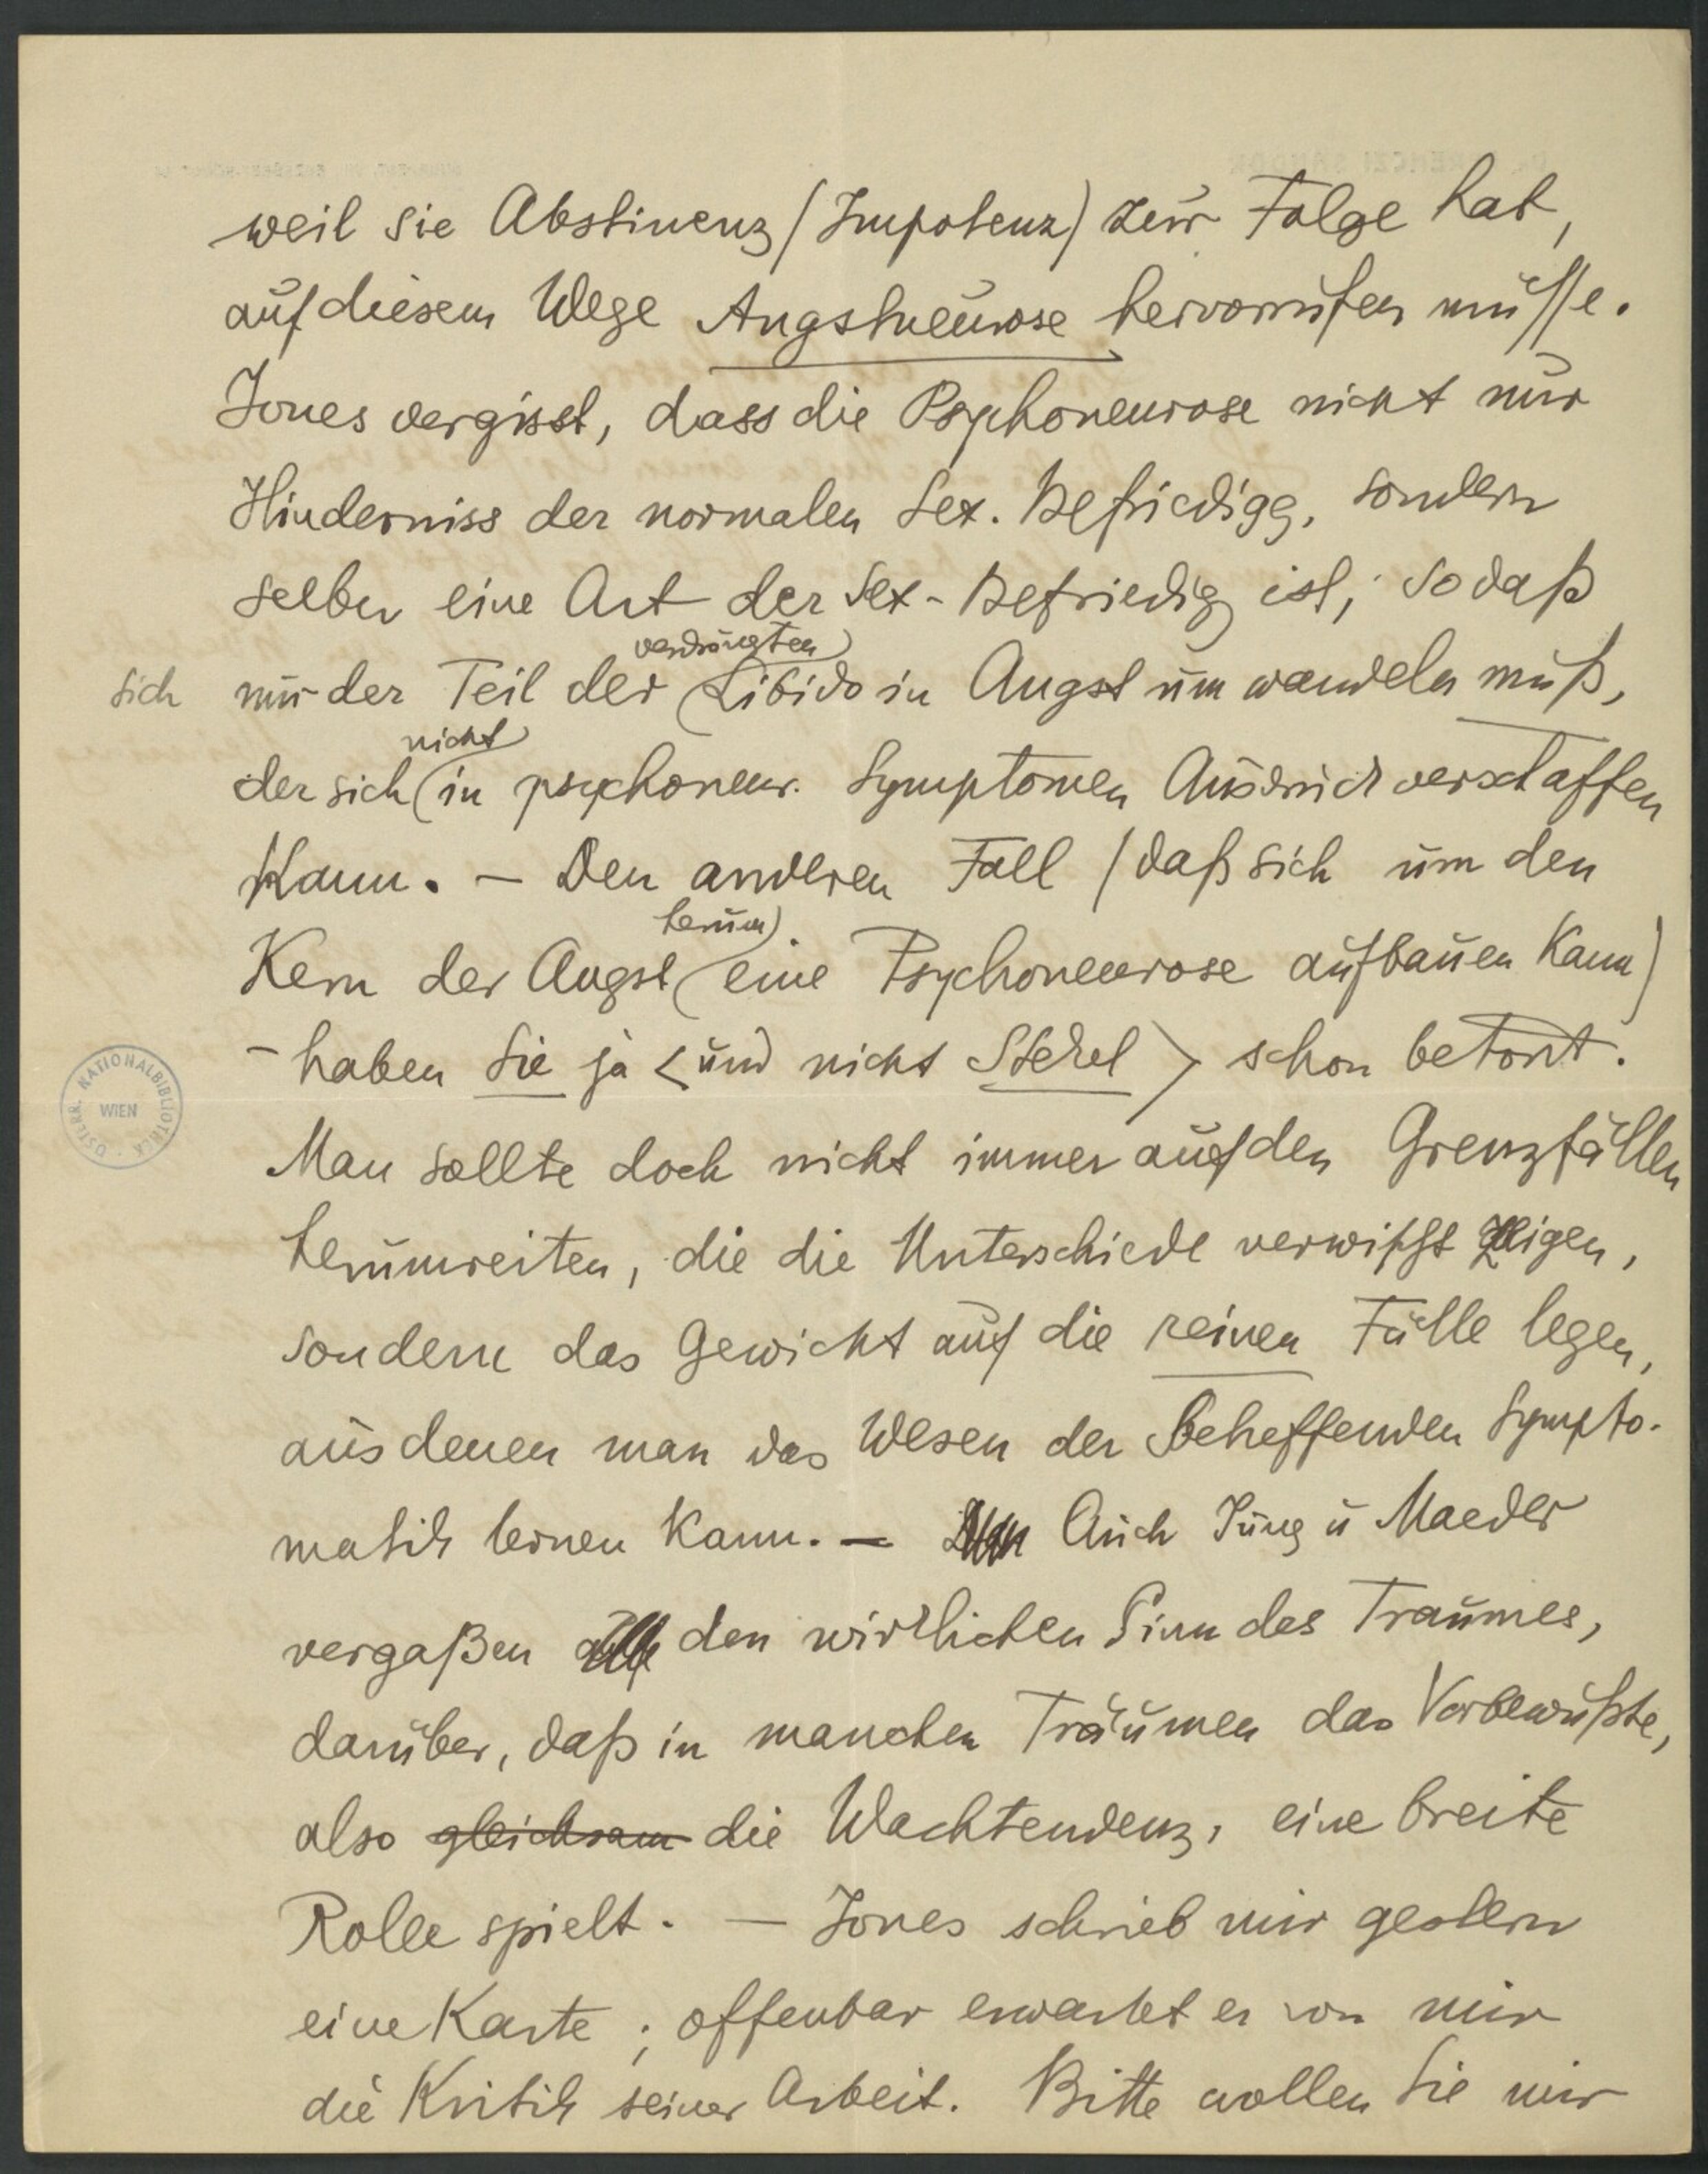 weil sie Abstinenz (Impotenz) zur Folge hat,
auf diesem Wege Angstneurose hervorrufen müsse.
Jones vergisst, dass die Psychoneurose nicht nur
Hinderniss der normalen Sex. Befriedigg, sondern
selber eine Art der Sex-Befriedig ist; sodaß
verdrängten
sich nur der Teil der Libido in Angst umwandeln muß,
nicht
der sich in psychoneur. Symptomen Ausdruck verschaffen
kann. – Den anderen Fall (daß sich um den
herum
Kern der Angst eine Psychoneurose aufbauen kann)
– haben Sie ja <und nicht Stekel> schon betont.
ÖSTERR. NATIONALBIBLIOTHEK
WIEN
Man sollte doch nicht immer auf den Grenzfällen
herumreiten, die die Unterschiede verwischt zeigen,
sondern das Gewicht auf die reinen Fälle legen,
aus denen man das Wesen der betreffenden Sympto-
matik lernen kann. – Auch Jung u Maeder
vergaßen den wirklichen Sinn des Traumes,
darüber, daß in manchen Träumen das Vorbewußte,
also gleichsam die Wachtendenz, eine breite
Rolle spielt. – Jones schrieb mir gestern
eine Karte; offenbar erwartet er von mir
die Kritik seiner Arbeit. Bitte wollen Sie mir